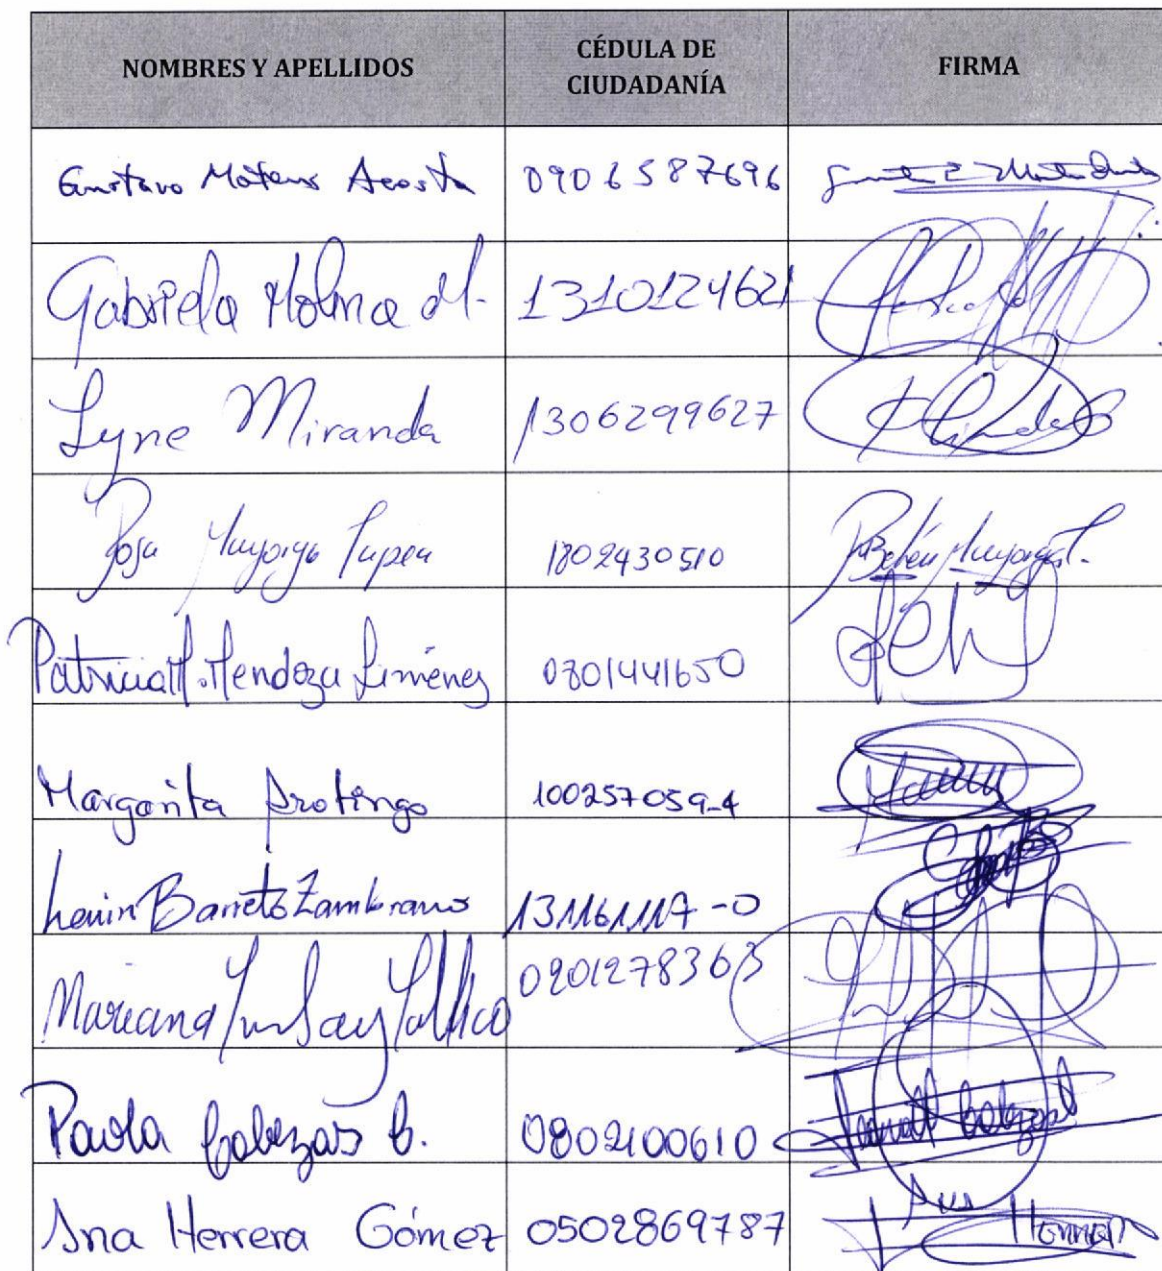 NOMBRES Y APELLIDOS
CÉDULA DE CIUDADANÍA
FIRMA
Gustavo Mateus Acosta 0906587696
Gabriela Molina M. 1310124621
Lyne Miranda 1306299627
Rosa Mayorga 1802430510 Belén Mayorga
Patricia M. Mendoza Jiménez 0801441650
Margarita Arotingo 100257059-4
Lenin Barreto Zambrano 131161117-0
Mariana Yumbay Yallico 0201278363
Paola Cabezas C. 0802100610 Cabezas
Ana Herrera Gómez 0502869787 Ana Herrera